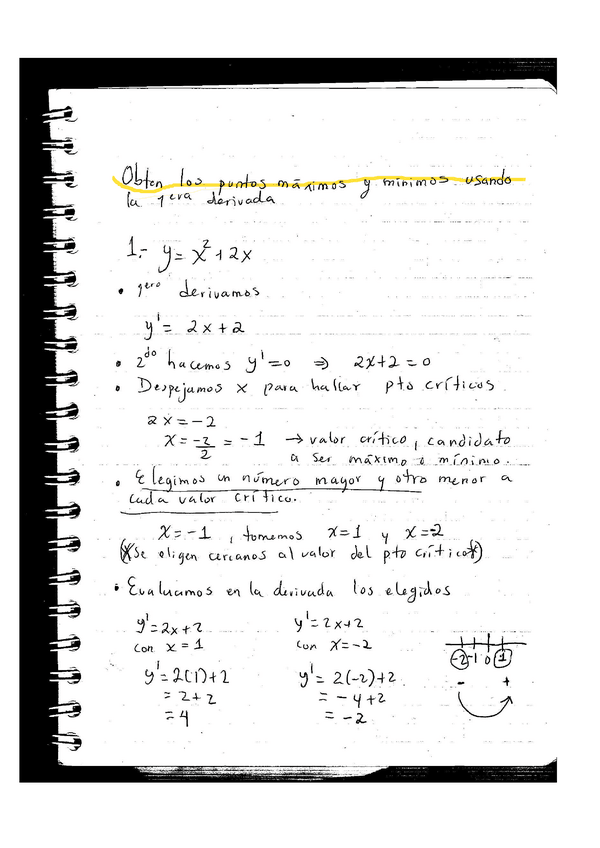 Obten los puntos máximos y mínimos usando
la 1era derivada
1.- y = x² + 2x
• 1ero derivamos
y' = 2x + 2
• 2do hacemos y' = 0 ⇒ 2x+2 = 0
• Despejamos x para hallar pto críticos
2x = -2
x = -2/2 = -1 → valor crítico, candidato
a ser máximo o mínimo.
• Elegimos un número mayor y otro menor a
cada valor crítico.
x = -1, tomemos x=1 y x=-2
(*Se eligen cercanos al valor del pto crítico*)
• Evaluamos en la derivada los elegidos
y' = 2x+2 y' = 2x+2
con x = 1 con x = -2
y' = 2(1)+2 y' = 2(-2)+2
= 2+2 = -4+2
= 4 = -2
-2 -1 0 1
- +